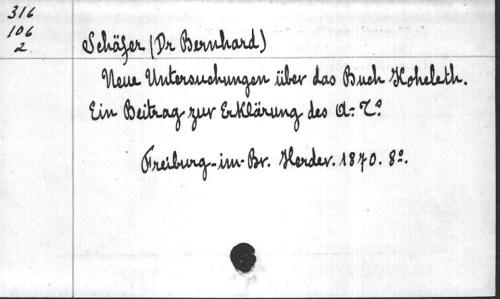 316
106
2
Schäfer (Dr Bernhard)
Neue Untersuchungen über das Buch Koheleth.
Ein Beitrag zur Erklärung des A: T.
Freiburg-im-Br. Herder. 1870. 8º.